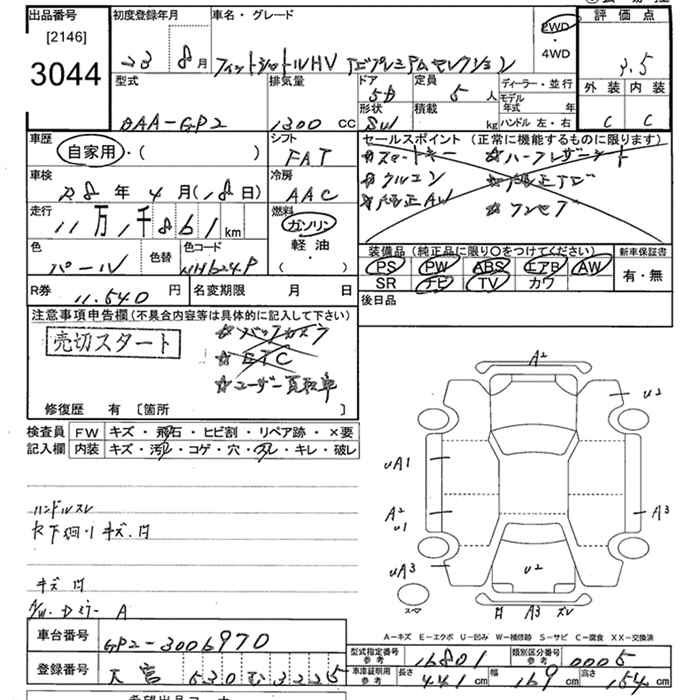 出品番号 初度登録年月 車名・グレード 2WD 評価点
[2146] 4WD
3044 23 8月 フィットシャトルHV ナビプレミアムセレクション 3.5
型式 排気量 ドア 5D 定員 5人 ディーラー・並行 外装 内装
形状 SW 積載 kg モデル年式 年
DAA-GP2 1300cc ハンドル左・右 C C
車歴 シフト セールスポイント(正常に機能するものに限ります)
自家用・( ) FAT ☆スマートキー ☆ハーフレザーシート
車検 冷房 ☆クルコン ☆純正ナビ
R8年4月(18日) AAC ☆純正AW ☆ワンセグ
走行 燃料
11万1千861km ガソリン
色 色替 色コード 軽油 装備品(純正品に限り○をつけてください) 新車保証書
パール NH624P ・( ) PS PW ABS エアB AW 有・無
SR ナビ TV カワ
R券 11,540円 名変期限 月 日 後日品
注意事項申告欄(不具合内容等は具体的に記入して下さい)
売切スタート ☆バックカメラ
☆ETC
☆ユーザー買取車
修復歴 有 [箇所 ]
検査員 FW キズ・飛石・ヒビ割・リペア跡・×要
記入欄 内装 キズ・汚レ・コゲ・穴・スレ・キレ・破レ
A2
U2
UA1
A2 U1
A3
UA3
U2
スペア
A3
スレ
ハンドルスレ
キズ、凹
キズ凹
A/W・Dミラー A
A-キズ E-エクボ U-凹み W-補修跡 S-サビ C-腐食 XX-交換済
車台番号 GP2-3006970
型式指定番号 参考 16801 類別区分番号 参考 0005
登録番号 大宮 530 む 3225
車庫証明用 参考 長さ 441cm 幅 169cm 高さ 154cm